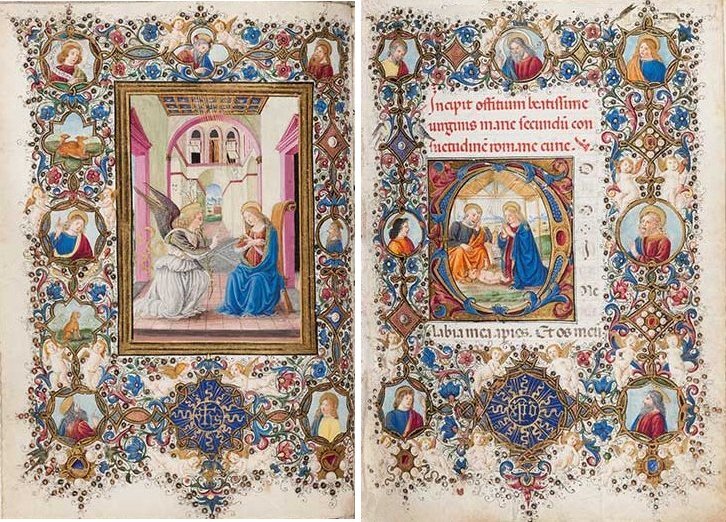 Incipit offitium beatissime
uirginis marie secundū con
suetudinē romane curie
Ne
labia mea aperies. Et os meū